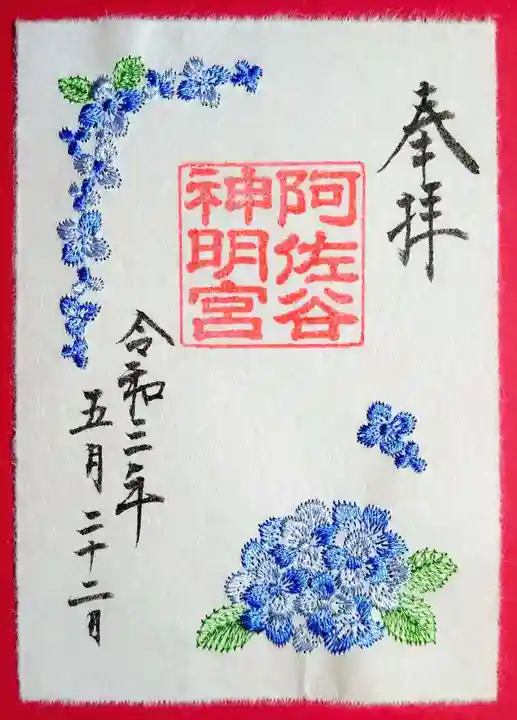 奉拝
阿佐谷
神明宮
令和二年
五月二十二日